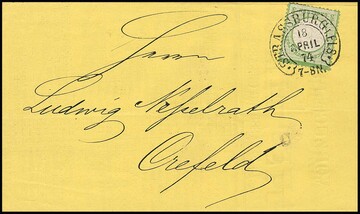 STRASSBURG i. ELS.
18
APRIL
74
7-8N.
Herrn
Ludwig Nesselrath
Crefeld